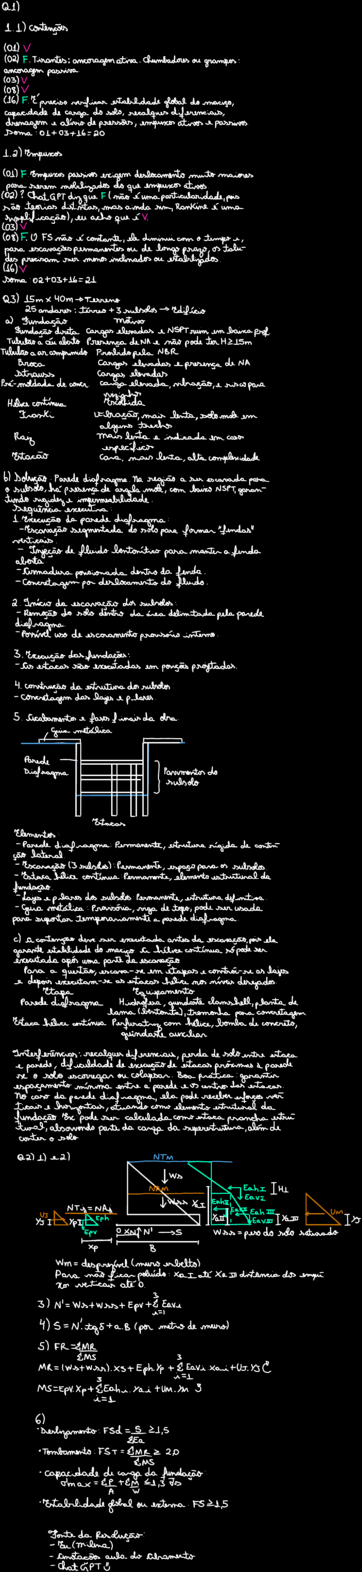 Q1)
1.1) Contenções
(01) V
(02) F. Tirantes: ancoragem ativa. Chumbadores ou grampos:
ancoragem passiva
(03) V
(08) V
(16) F. É preciso verificar estabilidade global do maciço,
capacidade de carga do solo, recalques diferenciais,
drenagem e alívio de pressões, empuxos ativos e passivos
Soma: 01+03+16=20
1.2) Empuxos
(01) F. Empuxos passivos exigem deslocamento muito maiores
para serem mobilizados do que empuxos ativos
(02) ? Chat GPT diz que F (não é uma particularidade, pois
são teorias distintas, mas ainda sim, Rankine é uma
simplificação), eu acho que é V.
(03) V
(08) F. O FS não é constante, ela diminui com o tempo e,
para escavações permanentes ou de longo prazo, os talu-
des precisam ser menos inclinados ou estabilizados.
(16) V
Soma 02+03+16=21
Q3) 15m x 40m → Terreno
25 andares: térreo + 3 subsolos → Edifício
a) Fundação Motivo
Fundação direta Cargas elevadas e NSPT ruim em baixa prof
Tubulão a céu aberto Presença de NA e não pode ter H≥15m
Tubulão a ar comprimido Proibido pela NBR
Broca Cargas elevadas e presença de NA
Strauss Cargas elevadas
Pré-moldada de concr carga elevada, vibração, e risco para
Hélice contínua Escolhida
Franki Vibração, mais lenta, solo mole em
algum trecho
Raiz Mais lenta e indicada em caso
específico
Estacão Cara, mais lenta, alta complexidade
b) Solução: Parede diafragma. Na região a ser escavada para
o subsolo, há presença de argila mole, com baixo NSPT, garan-
tindo rigidez e impermeabilidade.
Sequência executiva:
1. Execução da parede diafragma:
- Escavação segmentada do solo para formar "fendas"
verticais.
- Injeção de fluido bentonítico para manter a fenda
aberta
- Armadura posicionada dentro da fenda.
- Concretagem por deslocamento do fluido.
2. Início da escavação dos subsolos:
- Remoção do solo dentro da área delimitada pela parede
diafragma
- Possível uso de escoramento provisório interno.
3. Execução das fundações:
- As estacas são executadas em posições projetadas.
4. Construção da estrutura do subsolo
- Concretagem das lajes e pilares
5. Acabamentos e fases finais da obra
Guia metálica
Parede
Diafragma
Pavimentos do
subsolo
Estacas
Elementos:
- Parede diafragma: Permanente, estrutura rígida de conten-
ção lateral
- Escavação (3 subsolos): Permanente, espaço para os subsolos
- Estaca hélice contínua: Permanente, elemento estrutural da
fundação.
- Lajes e pilares dos subsolos: Permanente, estrutura definitiva.
- Guia metálica: Provisória, viga de topo, pode ser usada
para suportar temporariamente a parede diafragma
c) A contenção deve ser executada antes da escavação, pois ela
garante estabilidade do maciço. A hélice contínua só pode ser
executada após uma parte da escavação
Para a questão, escava-se em etapas e constrói-se as lajes
e depois executam-se as estacas hélice nos níveis desejados
Etapa Equipamento
Parede diafragma Hidrofresa, guindaste clamshell, planta de
lama (bentonita), tremonha para concretagem
Estaca hélice contínua Perfuratriz com hélice, bomba de concreto,
guindaste auxiliar
Interferências: recalques diferenciais, perda de solo entre estaca
e parede, dificuldade de execução de estacas próximas à parede
se o solo escorregar ou colapsar. Boa prática: garantir
espaçamento mínimo entre a parede e os centro das estacas.
No caso da parede diafragma, ela pode receber esforços ver-
ticais e horizontais, atuando como elemento estrutural da
fundação. Ela pode ser calculada como estaca prancha estru-
tural, absorvendo parte da carga da superestrutura, além de
conter o solo.
Q2) 1) e 2)
NTM
NAM
Ws
Wss
XI
EahI
EavI
H1
EahII
EavII
EahIII
EavIII
XaII
XaIII
Um
NTJ=NAJ
UJ
YJ
Yp
Eph
Epv
Xp
O
N'
→S
B
Wss = peso do solo saturado
Wm = desprezível (muro esbelto)
Para não ficar poluído: XaI até XaIII distância dos empu
xos verticais até O
3) N' = Ws + Wss + Epv + Σ Eavi
4) S = N'.tgδ + a.B (por metro de muro)
5) FR = ΣMR / ΣMS
MR = (Ws+Wss).Xs + Eph.Yp + Σ Eavi.Xai + UJ.YJ
MS = Epv.Xp + Σ Eahi.Yai + Um.Ym
6)
· Deslizamento: FSd = S / ΣEa ≥ 1,5
· Tombamento: FST = ΣMR / ΣMS ≥ 2,0
· Capacidade de carga da fundação
σmax = ΣP/A + ΣM/W ≤ 1,3 σs
· Estabilidade global ou externa: FS ≥ 1,5
Fonte da Resolução:
- Eu (Milena)
- Anotações aula do Adramento
- Chat GPT